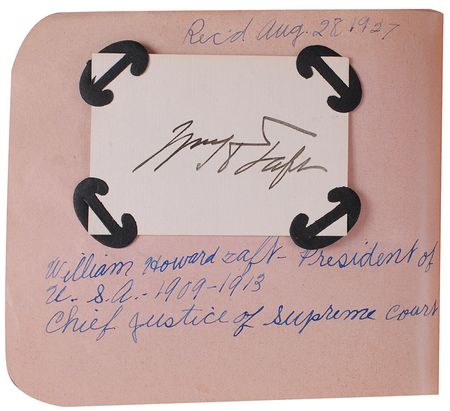 Rec'd Aug. 28 1927
Wm H Taft
William Howard Taft - President of
U. S. A. - 1909-1913
Chief Justice of Supreme Court